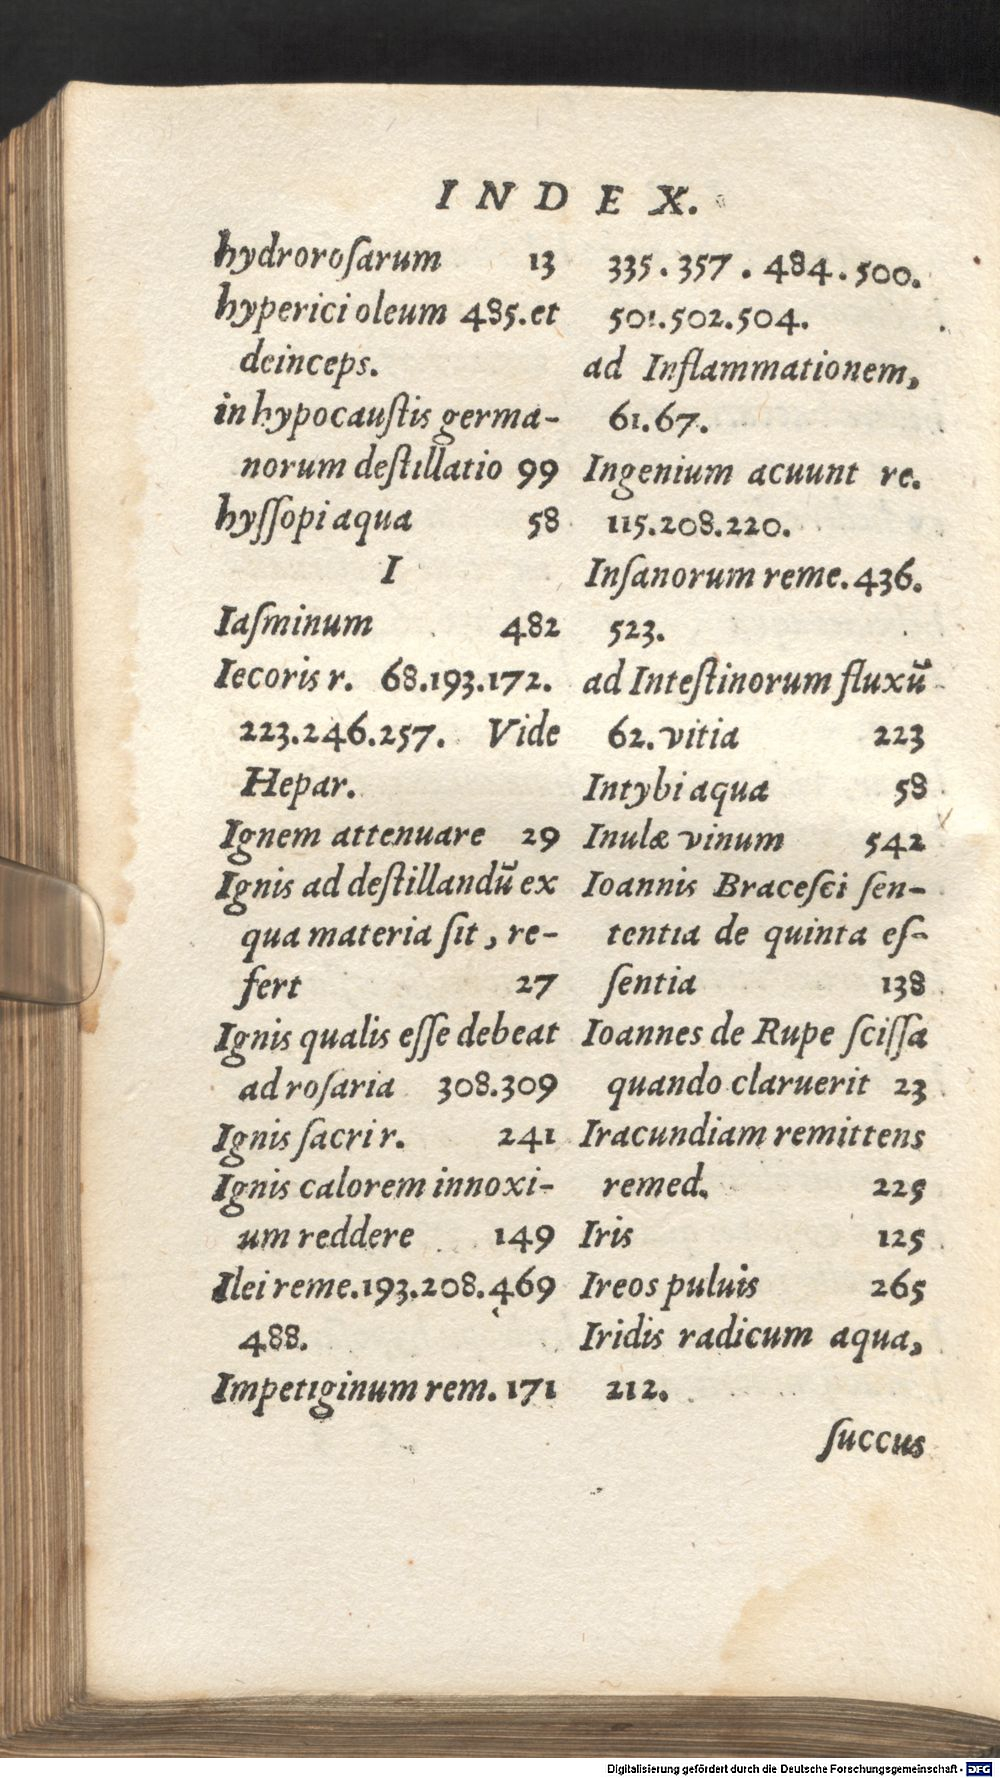 INDEX.
hydroroſarum 13
hyperici oleum 485. et
deinceps.
in hypocauſtis germa-
norum deſtillatio 99
hyſſopi aqua 58
I
Iaſminum 482
Iecoris r. 68.193.172.
223.246.257. Vide
Hepar.
Ignem attenuare 29
Ignis ad deſtillandū ex
qua materia ſit, re-
fert 27
Ignis qualis eſſe debeat
ad roſaria 308.309
Ignis ſacri r. 241
Ignis calorem innoxi-
um reddere 149
Ilei reme.193.208.469
488.
Impetiginum rem. 171
335.357.484.500.
501.502.504.
ad Inflammationem,
61.67.
Ingenium acuunt re.
115.208.220.
Inſanorum reme.436.
523.
ad Inteſtinorum fluxū
62. vitia 223
Intybi aqua 58
Inulæ vinum 542
Ioannis Braceſci ſen-
tentia de quinta eſ-
ſentia 138
Ioannes de Rupe ſciſſa
quando claruerit 23
Iracundiam remittens
remed. 225
Iris 125
Ireos puluis 265
Iridis radicum aqua,
212.
ſuccus
Digitalisierung gefördert durch die Deutsche Forschungsgemeinschaft - DFG